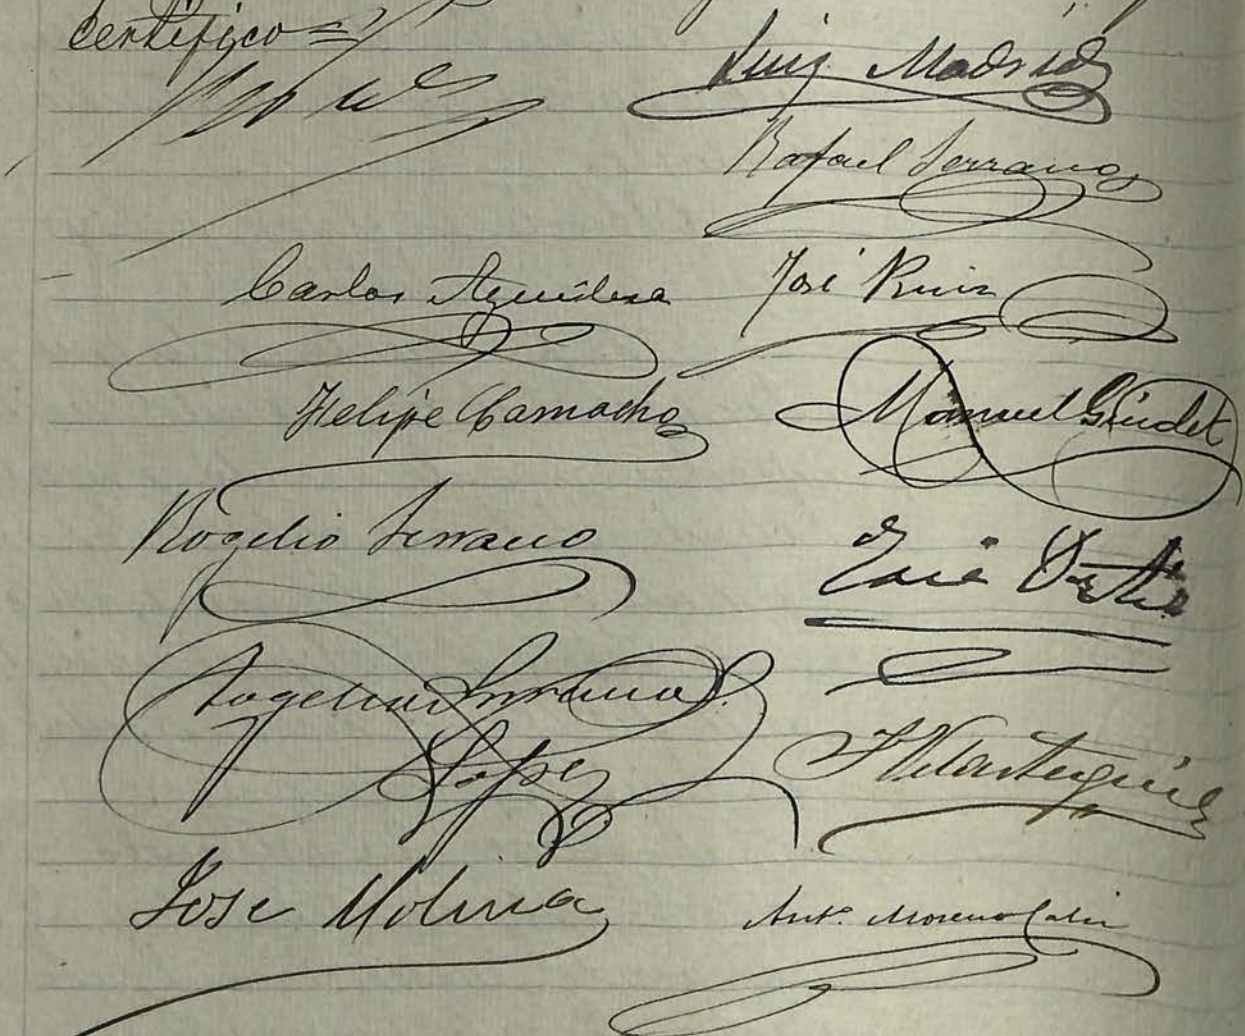 Certifico=
Luis Madrid
Rafael Serrano
Carlos Aguilera
José Ruiz
Felipe Camacho
Manuel Gindet
Rogelio Serrano
José
Rogelio Serrano
Lopez
Jose Molina
Ant.º Moreno Calin